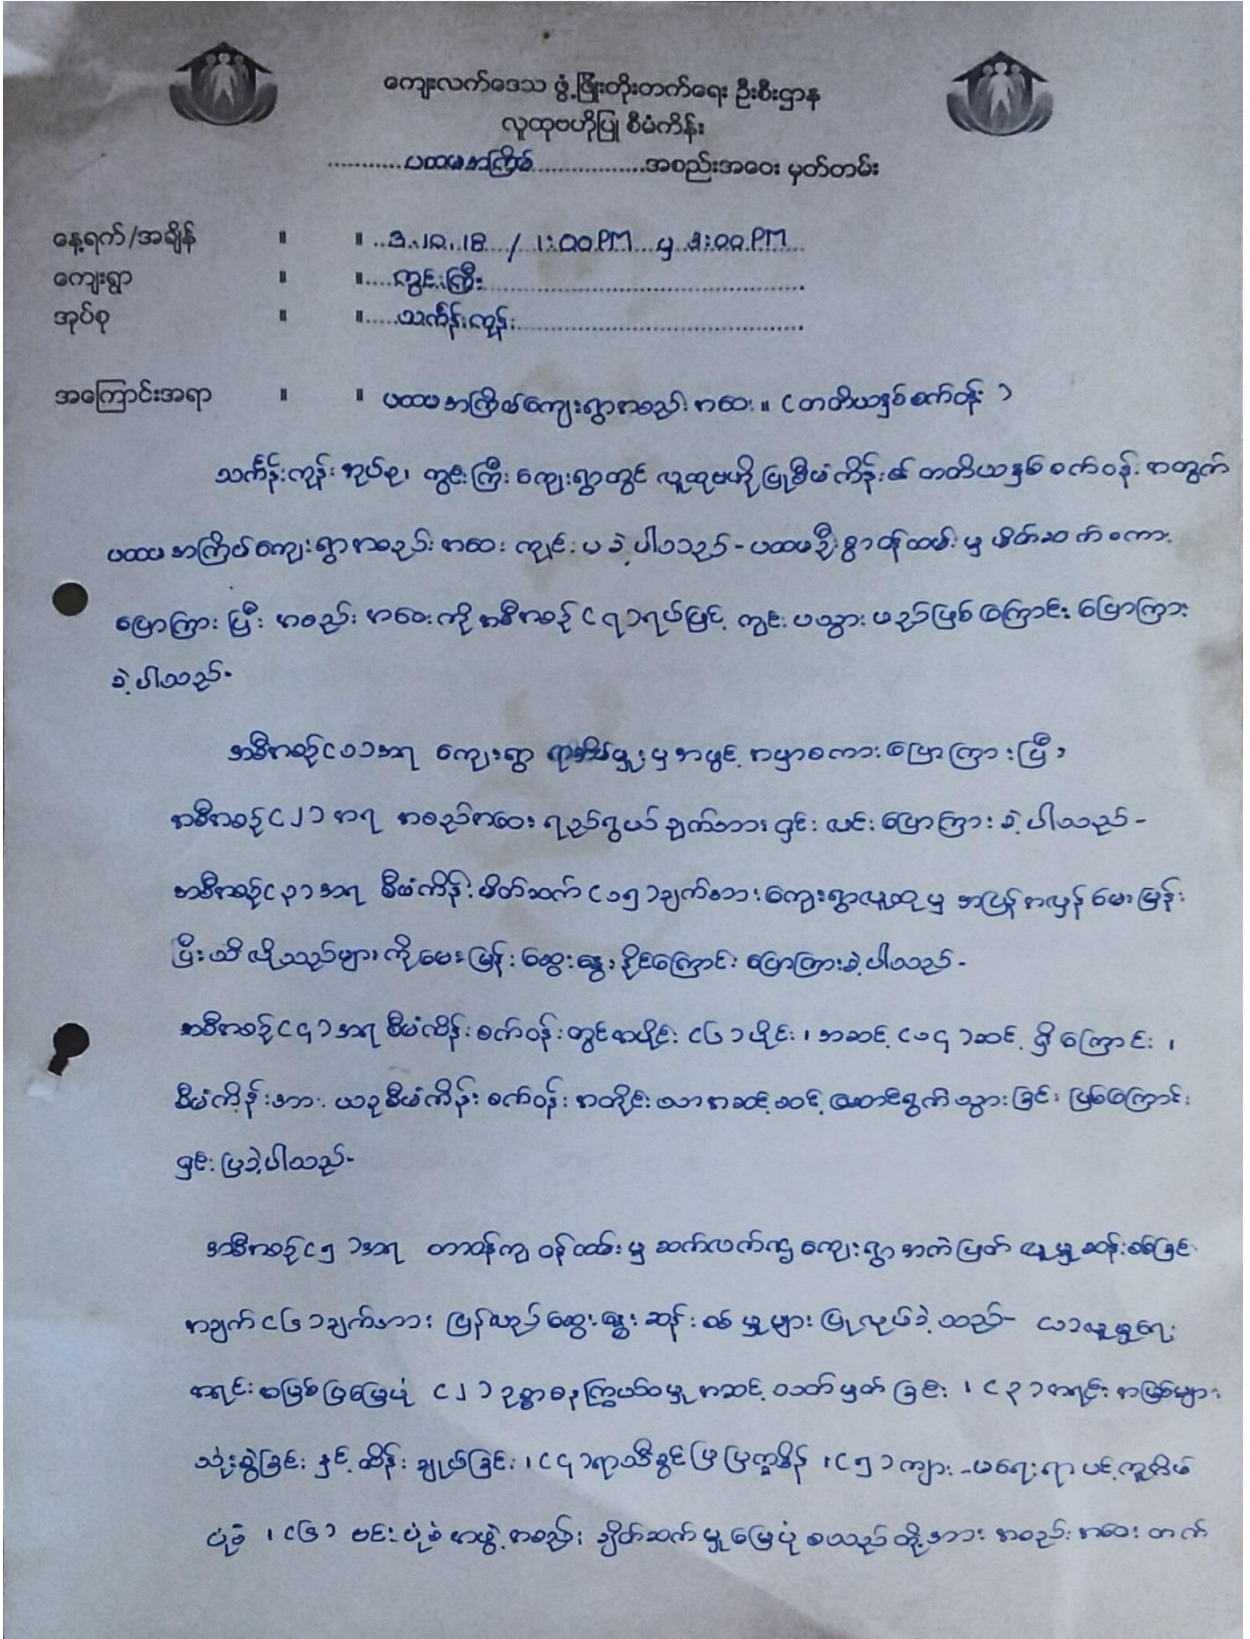 ကျေးလက်ဒေသ ဖွံ့ဖြိုးတိုးတက်ရေး ဦးစီးဌာန
လူထုဗဟိုပြု စီမံကိန်း
............ပထမအကြိမ်..................အစည်းအဝေး မှတ်တမ်း
နေ့ရက်/အချိန် ။ ။ 3.10.18 / 1:00 PM မှ 3:00 PM
ကျေးရွာ ။ ။ ကွင်းကြီး
အုပ်စု ။ ။ သင်္ကန်းကုန်း
အကြောင်းအရာ ။ ။ ပထမအကြိမ်ကျေးရွာအစည်းအဝေး ။ (တတိယနှစ်စက်ဝန်း)
သင်္ကန်းကုန်းအုပ်စု၊ ကွင်းကြီးကျေးရွာတွင် လူထုဗဟိုပြုစီမံကိန်း၏ တတိယနှစ်စက်ဝန်းအတွက်
ပထမအကြိမ်ကျေးရွာအစည်းအဝေး ကျင်းပခဲ့ပါသည်- ပထမဦးစွာ ဝန်ထမ်းမှ မိတ်ဆက်စကား
ပြောကြားပြီး အစည်းအဝေးကို အစီအစဉ် (၇) ရပ်ဖြင့် ကျင်းပသွားမည်ဖြစ်ကြောင်း ပြောကြား
ခဲ့ပါသည်-
အစီအစဉ် (၁) အရ ကျေးရွာ ရာအိမ်မှူးမှ အဖွင့်အမှာစကားပြောကြားပြီး
အစီအစဉ် (၂) အရ အစည်အဝေး ရည်ရွယ်ချက်အား ရှင်းလင်းပြောကြားခဲ့ပါသည်-
အစီအစဉ် (၃) အရ စီမံကိန်းမိတ်ဆက် (၁၅) ချက်အား ကျေးရွာလူထုမှ အပြန်အလှန် မေးမြန်း
ပြီး သိလိုသည်များကို မေးမြန်းဆွေးနွေးနိုင်ကြောင်း ပြောကြားခဲ့ပါသည်-
အစီအစဉ် (၄) အရ စီမံကိန်းစက်ဝန်းတွင် အပိုင်း (၆) ပိုင်း၊ အဆင့် (၁၄) ဆင့် ရှိကြောင်း၊
စီမံကိန်းအား ယခုစီမံကိန်းစက်ဝန်းအတိုင်းသာ အဆင့်ဆင့် ဆောင်ရွက်သွားခြင်း ဖြစ်ကြောင်း
ရှင်းပြခဲ့ပါသည်-
အစီအစဉ် (၅) အရ တာဝန်ကျဝန်ထမ်းမှ ဆက်လက်၍ ကျေးရွာအကဲဖြတ်လူမှုဆန်းစစ်ခြင်း
အချက် (၆) ချက်အား ပြန်လည်ဆွေးနွေးဆန်းစစ်မှုများ ပြုလုပ်ခဲ့သည်- (၁) လူမှုရေး
အရင်းအမြစ်ပြမြေပုံ (၂) ဥစ္စာဓနကြွယ်ဝမှုအဆင့်သတ်မှတ်ခြင်း၊ (၃) အရင်းအမြစ်များ
သုံးစွဲခြင်း နှင့် ထိန်းချုပ်ခြင်း၊ (၄) ရာသီခွင်ပြပြက္ခဒိန်၊ (၅) ကျား-မရေးရာ ပင့်ကူအိမ်
ပုံစံ၊ (၆) ဗင်းပုံစံ အဖွဲ့အစည်းချိတ်ဆက်မှုမြေပုံ စသည်တို့အား အစည်းအဝေးတက်